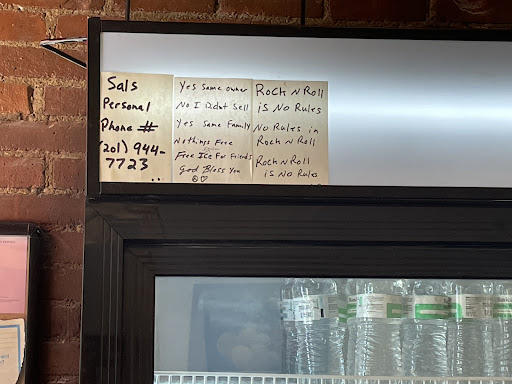 Sals
Personal
Phone #
(201) 944-
7723
Yes Same owner
No I Didnt Sell
Yes Same Family
Nothings Free
Free Ice For Friends
God Bless You
Rock N Roll
is No Rules
No Rules in
Rock N Roll
Rock N Roll
is No Rules